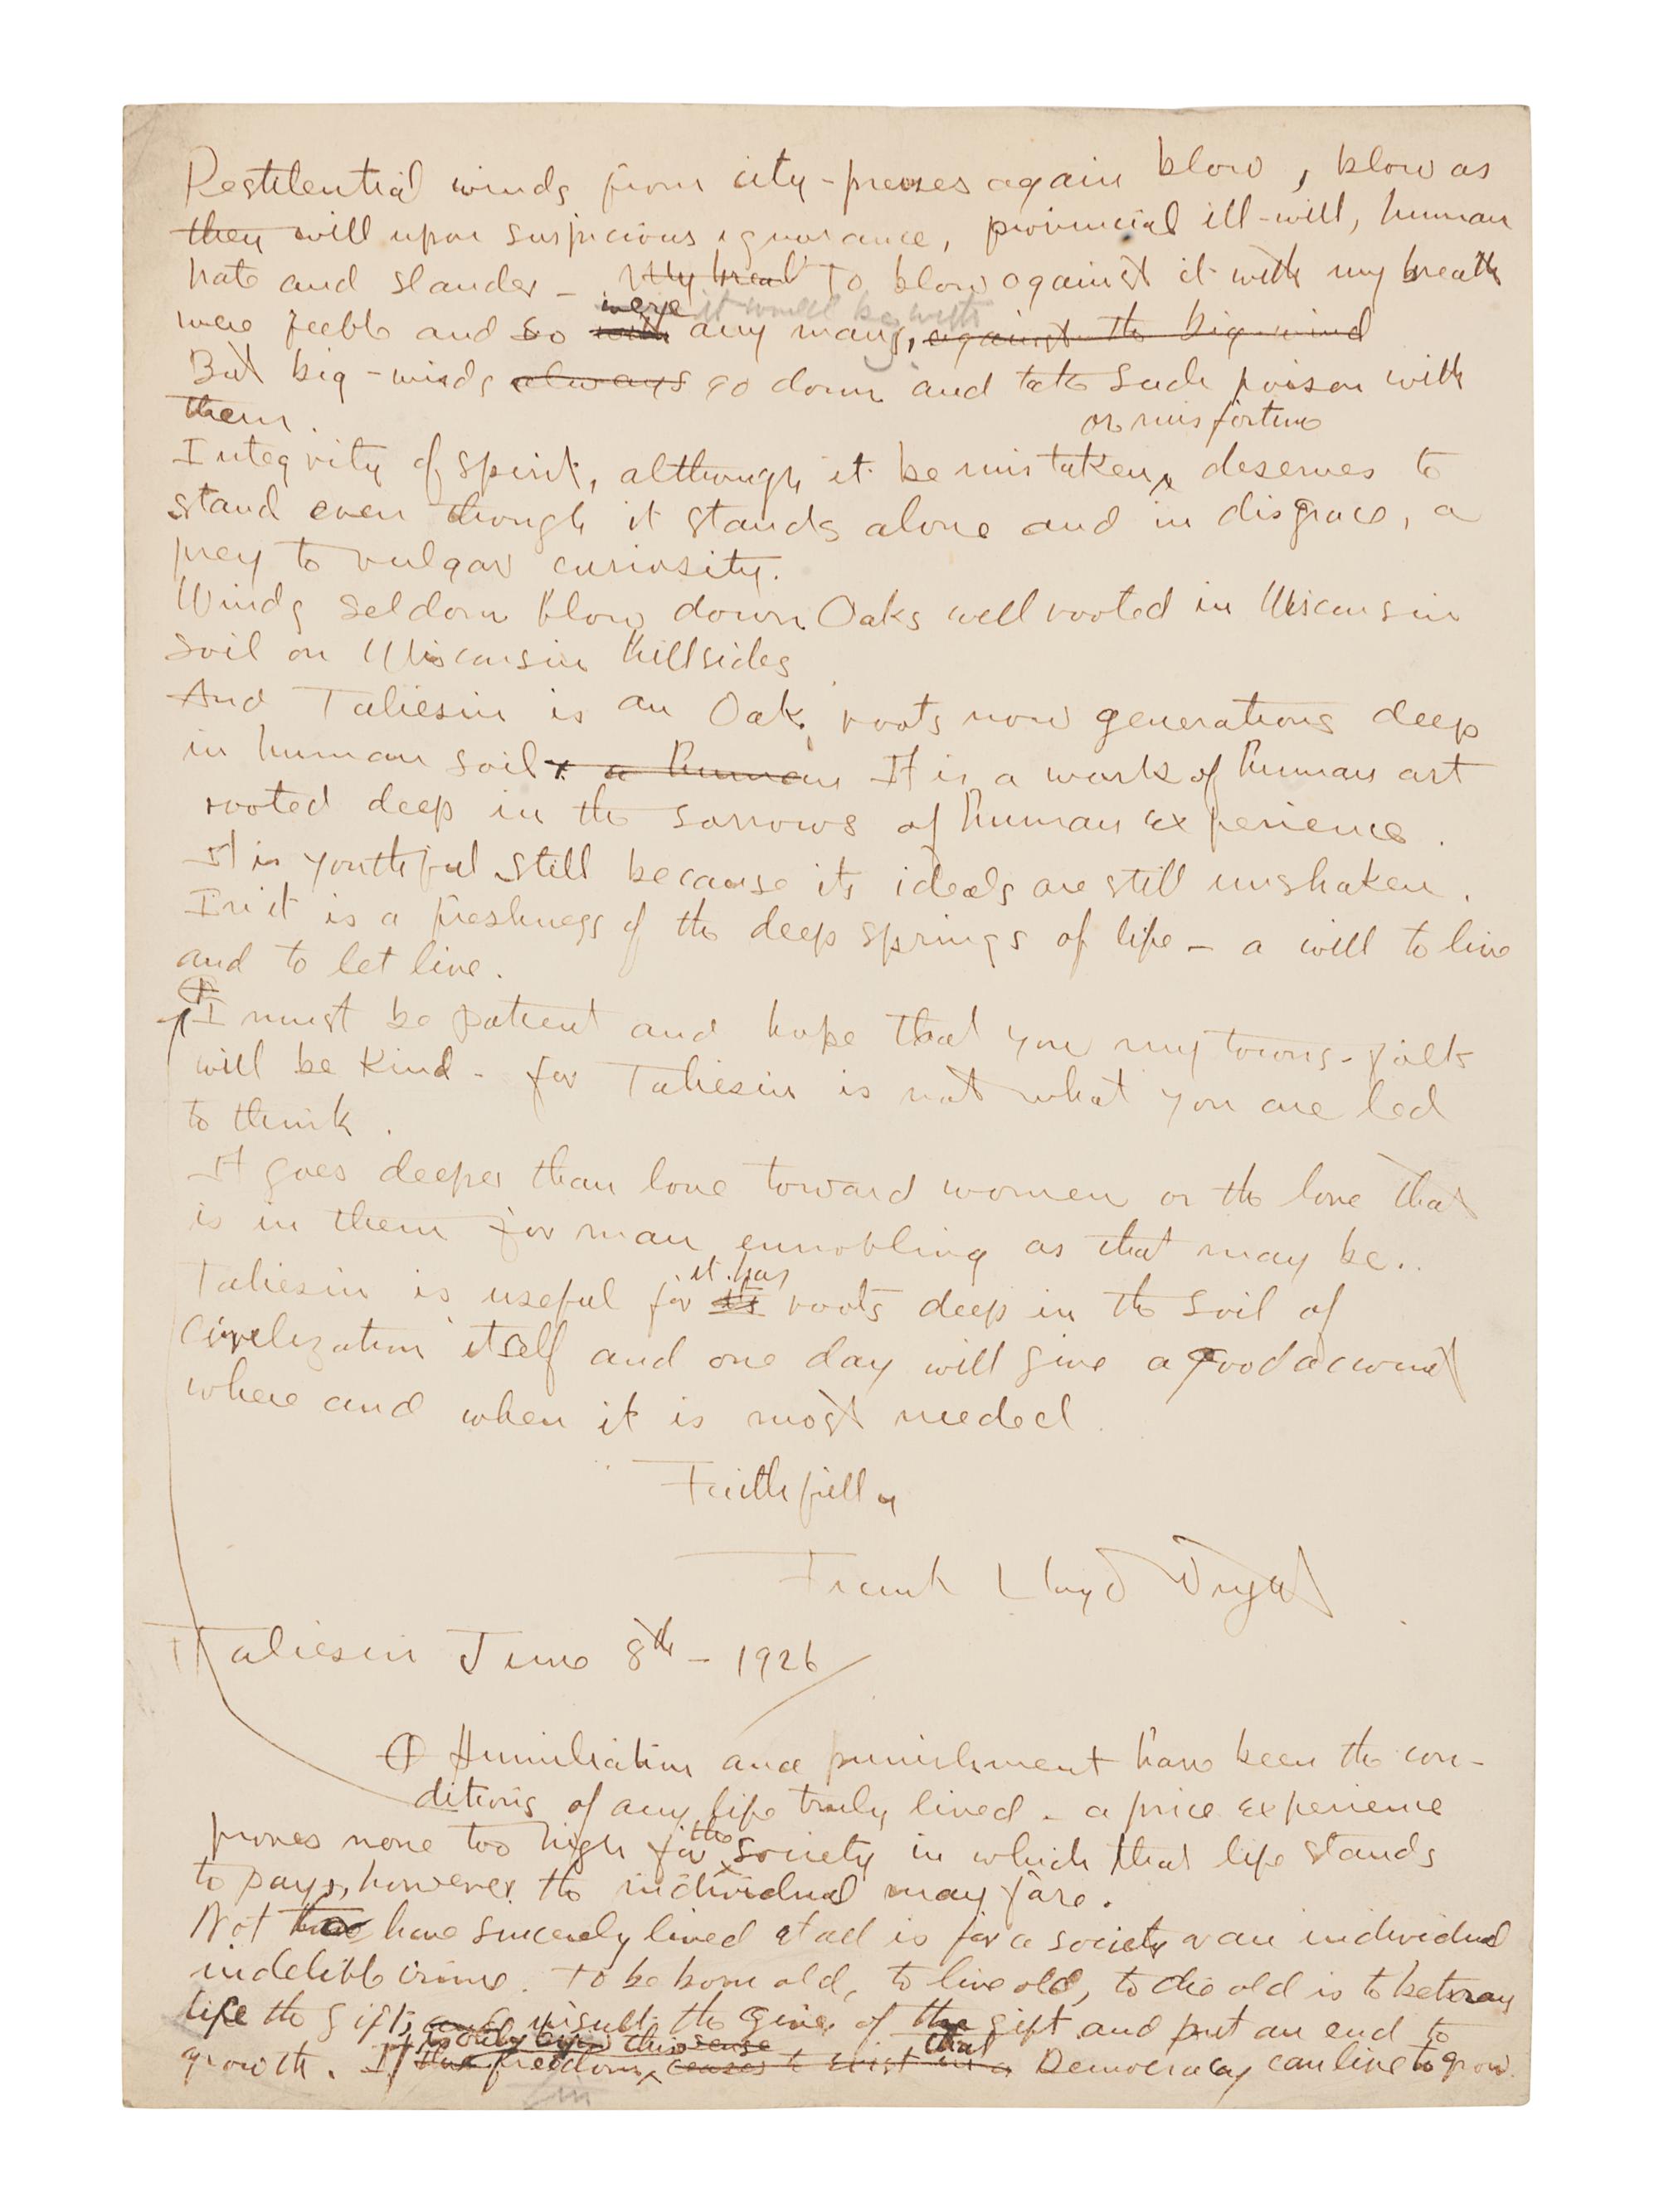 Pestilential winds from city-presses again blow, blow as
they will upon suspicious ignorance, provincial ill-will, human
hate and slander - My breat To blow against it with my breath
were it would be with
were feeble and so with any mans, against the big wind
But big-winds always go down and take such poison with
them.
or misfortune
Integrity of spirit, although it be mistaken, deserves to
stand even though it stands alone and in disgrace, a
prey to vulgar curiosity.
Winds seldom blow down Oaks well rooted in Wisconsin
soil on Wisconsin hillsides
And Taliesin is an Oak, roots now generations deep
in human soil. a human It is a work of human art
rooted deep in the sorrows of human experience.
It is youthful still because its ideals are still unshaken.
In it is a freshness of the deep springs of life - a will to live
and to let live.
I must be patient and hope that you my towns-folk
will be kind - for Taliesin is not what you are led
to think.
It goes deeper than love toward women or the love that
is in them for man ennobling as that may be..
it has
Taliesin is useful for its roots deep in the soil of
Civilization itself and one day will give a good account
where and when it is most needed.
Faithfully
Frank Lloyd Wright
Taliesin June 8th - 1926
Humiliation and punishment have been the con-
ditions of any life truly lived - a price experience
the
proves none too high for society in which that life stands
to pay, however the individual may fare.
Not have sincerely lived at all is for a society or an individual
indelible crime. To be born old, to live old, to die old is to betray
life the gift, insult the Giver of the gift and put an end to
is only by in this sense that
growth. freedom, ceases to exist in a Democracy can live to grow.
in